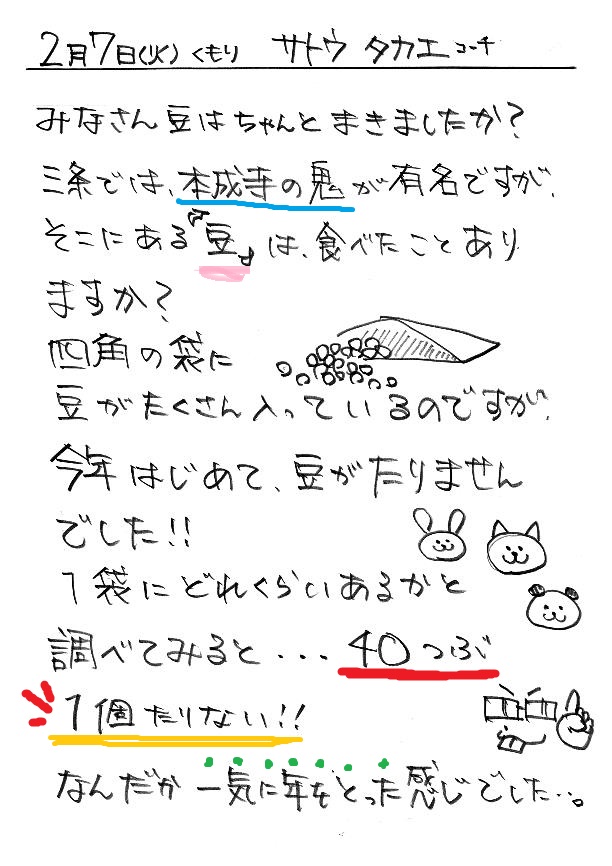 2月7日(火) くもり サトウ タカエ コーチ
みなさん豆はちゃんとまきましたか?
三条では、本成寺の鬼が有名ですが、
そこにある『豆』は、食べたことあり
ますか?
四角の袋に
豆がたくさん入っているのですが、
今年はじめて、豆がたりません
でした!!
1袋にどれくらいあるかと
調べてみると・・・40つぶ
1個たりない!!
なんだか一気に年をとった感じでした…。